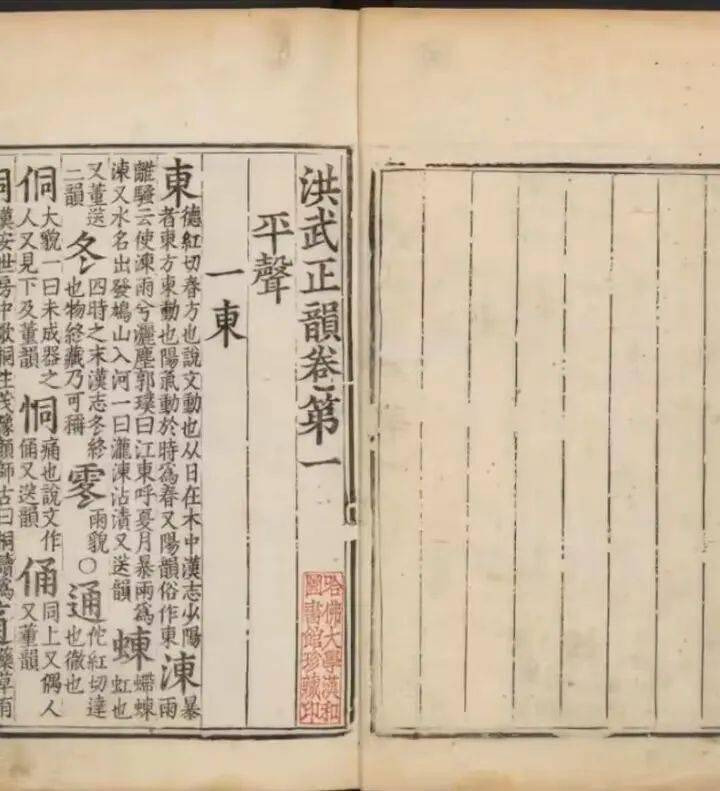 洪武正韻卷第一
哈佛大學漢和圖書館珍藏印
平聲
一東
東德紅切春方也說文動也从日在木中漢志少陽者東方東動也陽氣動於時爲春又陽韻俗作東涷暴雨
離騷云使涷雨兮灑塵郭璞曰江東呼夏月暴雨爲涷又水名出發鳩山入河一曰瀧涷沾漬又送韻蝀螮蝀虹也
又董送二韻冬四時之末漢志冬終也物終藏乃可稱雨貌○通佗紅切達也徹也
侗大貌一曰未成器之人又見下及董韻恫痛也說文作俑又送韻俑同上又偶人又董韻
漢安世房中歌桐生茂豫顏師古曰桐讀爲藥草有